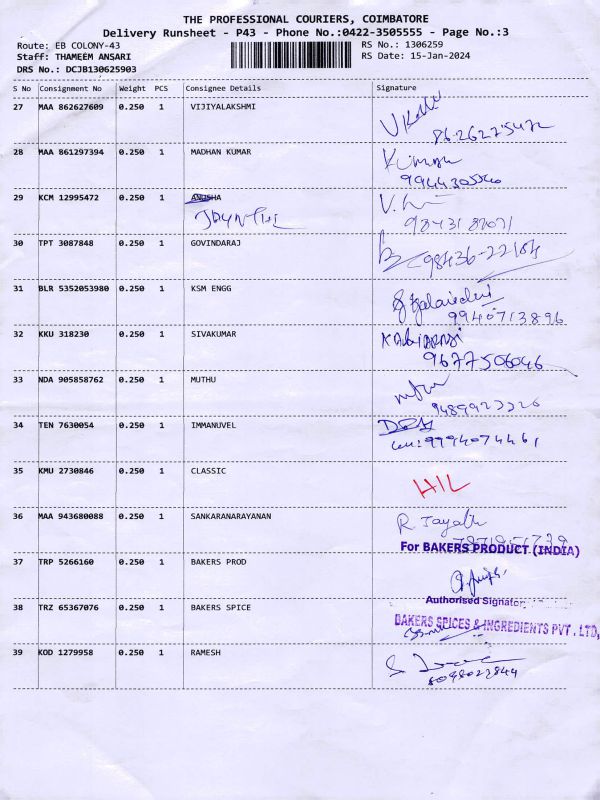 THE PROFESSIONAL COURIERS, COIMBATORE
Delivery Runsheet - P43 - Phone No.:0422-3505555 - Page No.:3
Route: EB COLONY-43 RS No.: 1306259
Staff: THAMEEM ANSARI RS Date: 15-Jan-2024
DRS No.: DCJB130625903
S No Consignment No Weight PCS Consignee Details Signature
27 MAA 862627609 0.250 1 VIJIYALAKSHMI
28 MAA 861297394 0.250 1 MADHAN KUMAR
9944305540
29 KCM 12995472 0.250 1 ANUSHA
30 TPT 3087848 0.250 1 GOVINDARAJ
98436-22184
31 BLR 5352053980 0.250 1 KSM ENGG
9940713896
32 KKU 318230 0.250 1 SIVAKUMAR
9677506046
33 NDA 905858762 0.250 1 MUTHU
34 TEN 7630054 0.250 1 IMMANUVEL
9994074461
35 KMU 2730846 0.250 1 CLASSIC
HIL
36 MAA 943680088 0.250 1 SANKARANARAYANAN
R. Jayath
For BAKERS PRODUCT (INDIA)
37 TRP 5266160 0.250 1 BAKERS PROD
Authorised Signator
38 TRZ 65367076 0.250 1 BAKERS SPICE
BAKERS SPICES & INGREDIENTS PVT. LTD,
39 KOD 1279958 0.250 1 RAMESH
8098022844